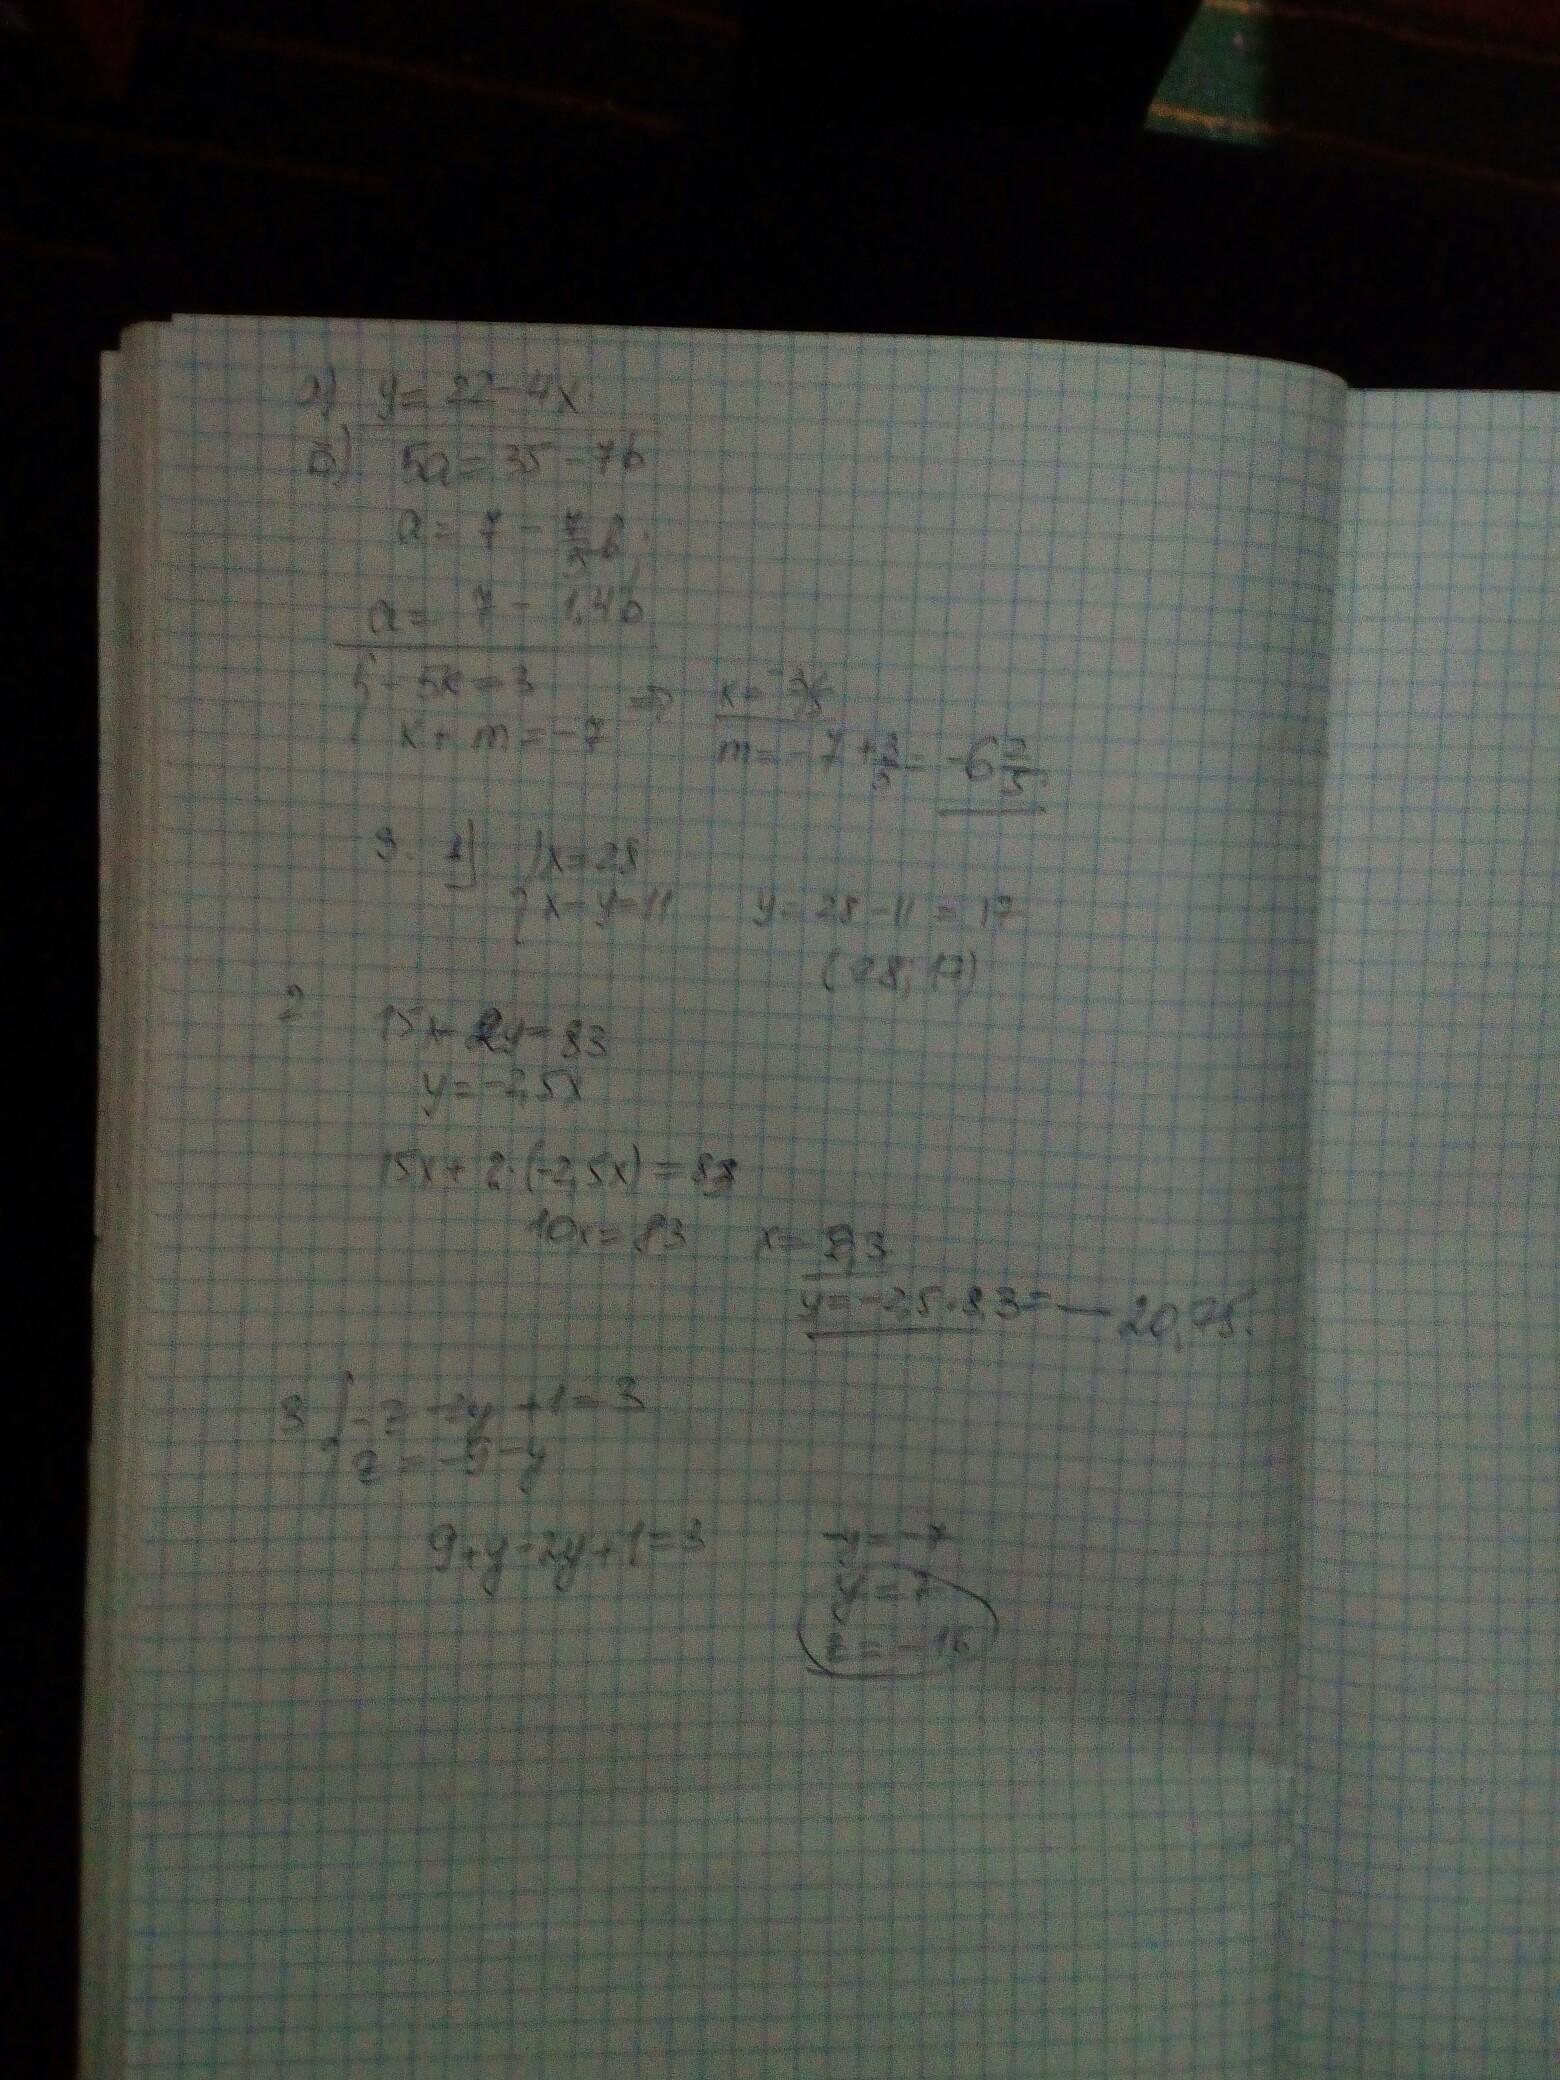 а) y = 22 - 4x
б) 5a = 35 - 7b
a = 7 - 7/5 b
a = 7 - 1,4b
{ - 5x = 3 => x = - 3/5
x + m = -7 m = - 7 + 3/5 = -6 2/5
3. 1) { x = 28
x - y = 11 y = 28 - 11 = 17
(28; 17)
2. 15x + 2y = 83
y = -2,5x
15x + 2·(-2,5x) = 83
10x = 83 x = 8,3
y = -2,5·8,3 = - 20,75.
3 { -z - 2y + 1 = 3
z = -9 - y
9 + y - 2y + 1 = 3 -y = -7
y = 7
z = -16